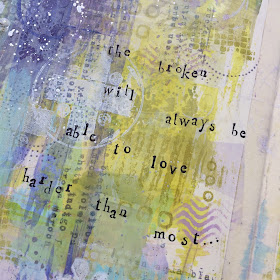 the broken
will
always be
able to love
harder than
most...